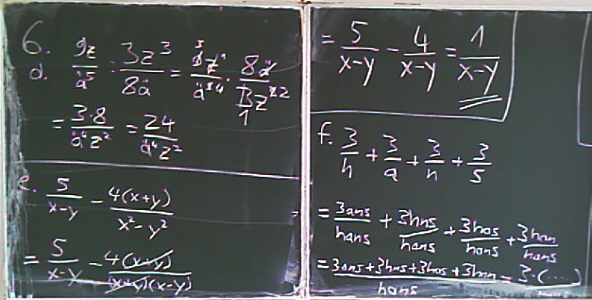 6.
d. 9z/ä⁵ · 3z³/8ä = 9z/ä⁵ · 8ä/3z³
= 3·8/ä⁴z² = 24/ä⁴z²
e. 5/(x-y) - 4(x+y)/(x²-y²)
= 5/(x-y) - 4(x+y)/((x+y)(x-y))
= 5/(x-y) - 4/(x-y) = 1/(x-y)
f. 3/h + 3/a + 3/n + 3/s
= 3ans/hans + 3hns/hans + 3has/hans + 3han/hans
= (3ans+3hns+3has+3hnn)/hans = 3·(...)